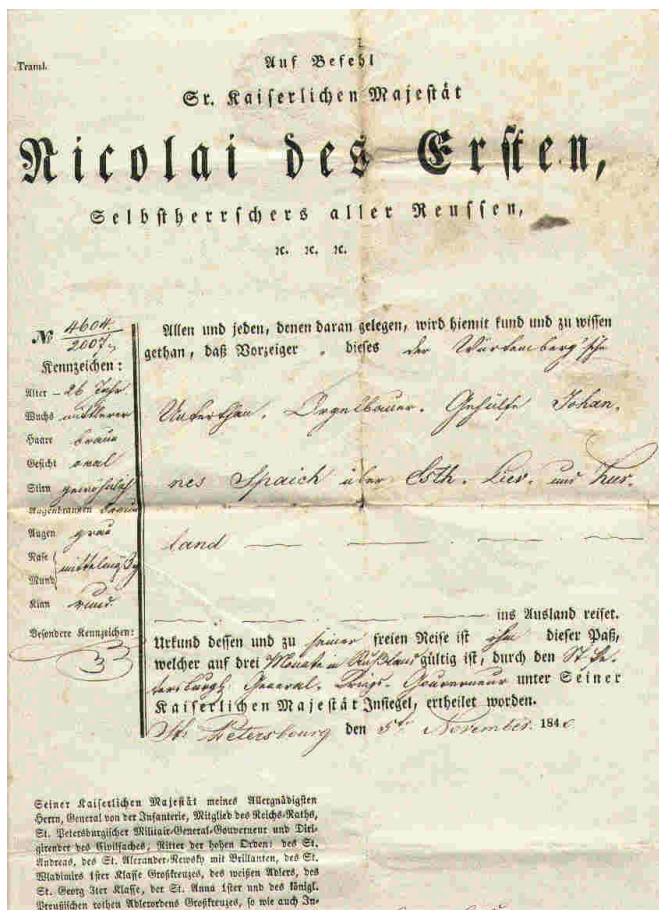 Transl.
Auf Befehl
Sr. Kaiserlichen Majestät
Nicolai des Ersten,
Selbstherrschers aller Reussen,
ꝛc. ꝛc. ꝛc.
№ 4604.
2007.
Kennzeichen:
Alter – 26 Jahr
Wuchs mittlerer
Haare braun
Gesicht oval
Stirn gewöhnlich
Augenbraunen braun
Augen grau
Nase
Mund mittelmäßig
Kinn rund.
Besondere Kennzeichen:
Allen und jeden, denen daran gelegen, wird hiemit kund und zu wissen
gethan, daß Vorzeiger dieses der Würtemberg'sche
Unterthan, Orgelbauer-Gehülfe Johan-
nes Spaich über Esth-, Liev- und Kur-
land
ins Ausland reiset.
Urkund dessen und zu seiner freien Reise ist ihm dieser Paß,
welcher auf drei Monate in Rußland gültig ist, durch den St. Pe-
tersburgh. General-Kriegs-Gouverneur unter Seiner
Kaiserlichen Majestät Insiegel, ertheilet worden.
St. Petersbourg den 5ten November 184
Seiner Kaiserlichen Majestät meines Allergnädigsten
Herrn, General von der Infanterie, Mitglied des Reichs-Raths,
St. Petersburgischer Militair-General-Gouverneur und Diri-
girender des Civilfaches, Ritter der hohen Orden: des St.
Andreas, des St. Alexander-Newsky mit Brillanten, des St.
Wladimirs 1ster Klasse Großkreuzes, des weißen Adlers, des
St. Georg 3ter Klasse, der St. Anna 1ster und des königl.
Preußischen rothen Adlerordens Großkreuzes, so wie auch In-